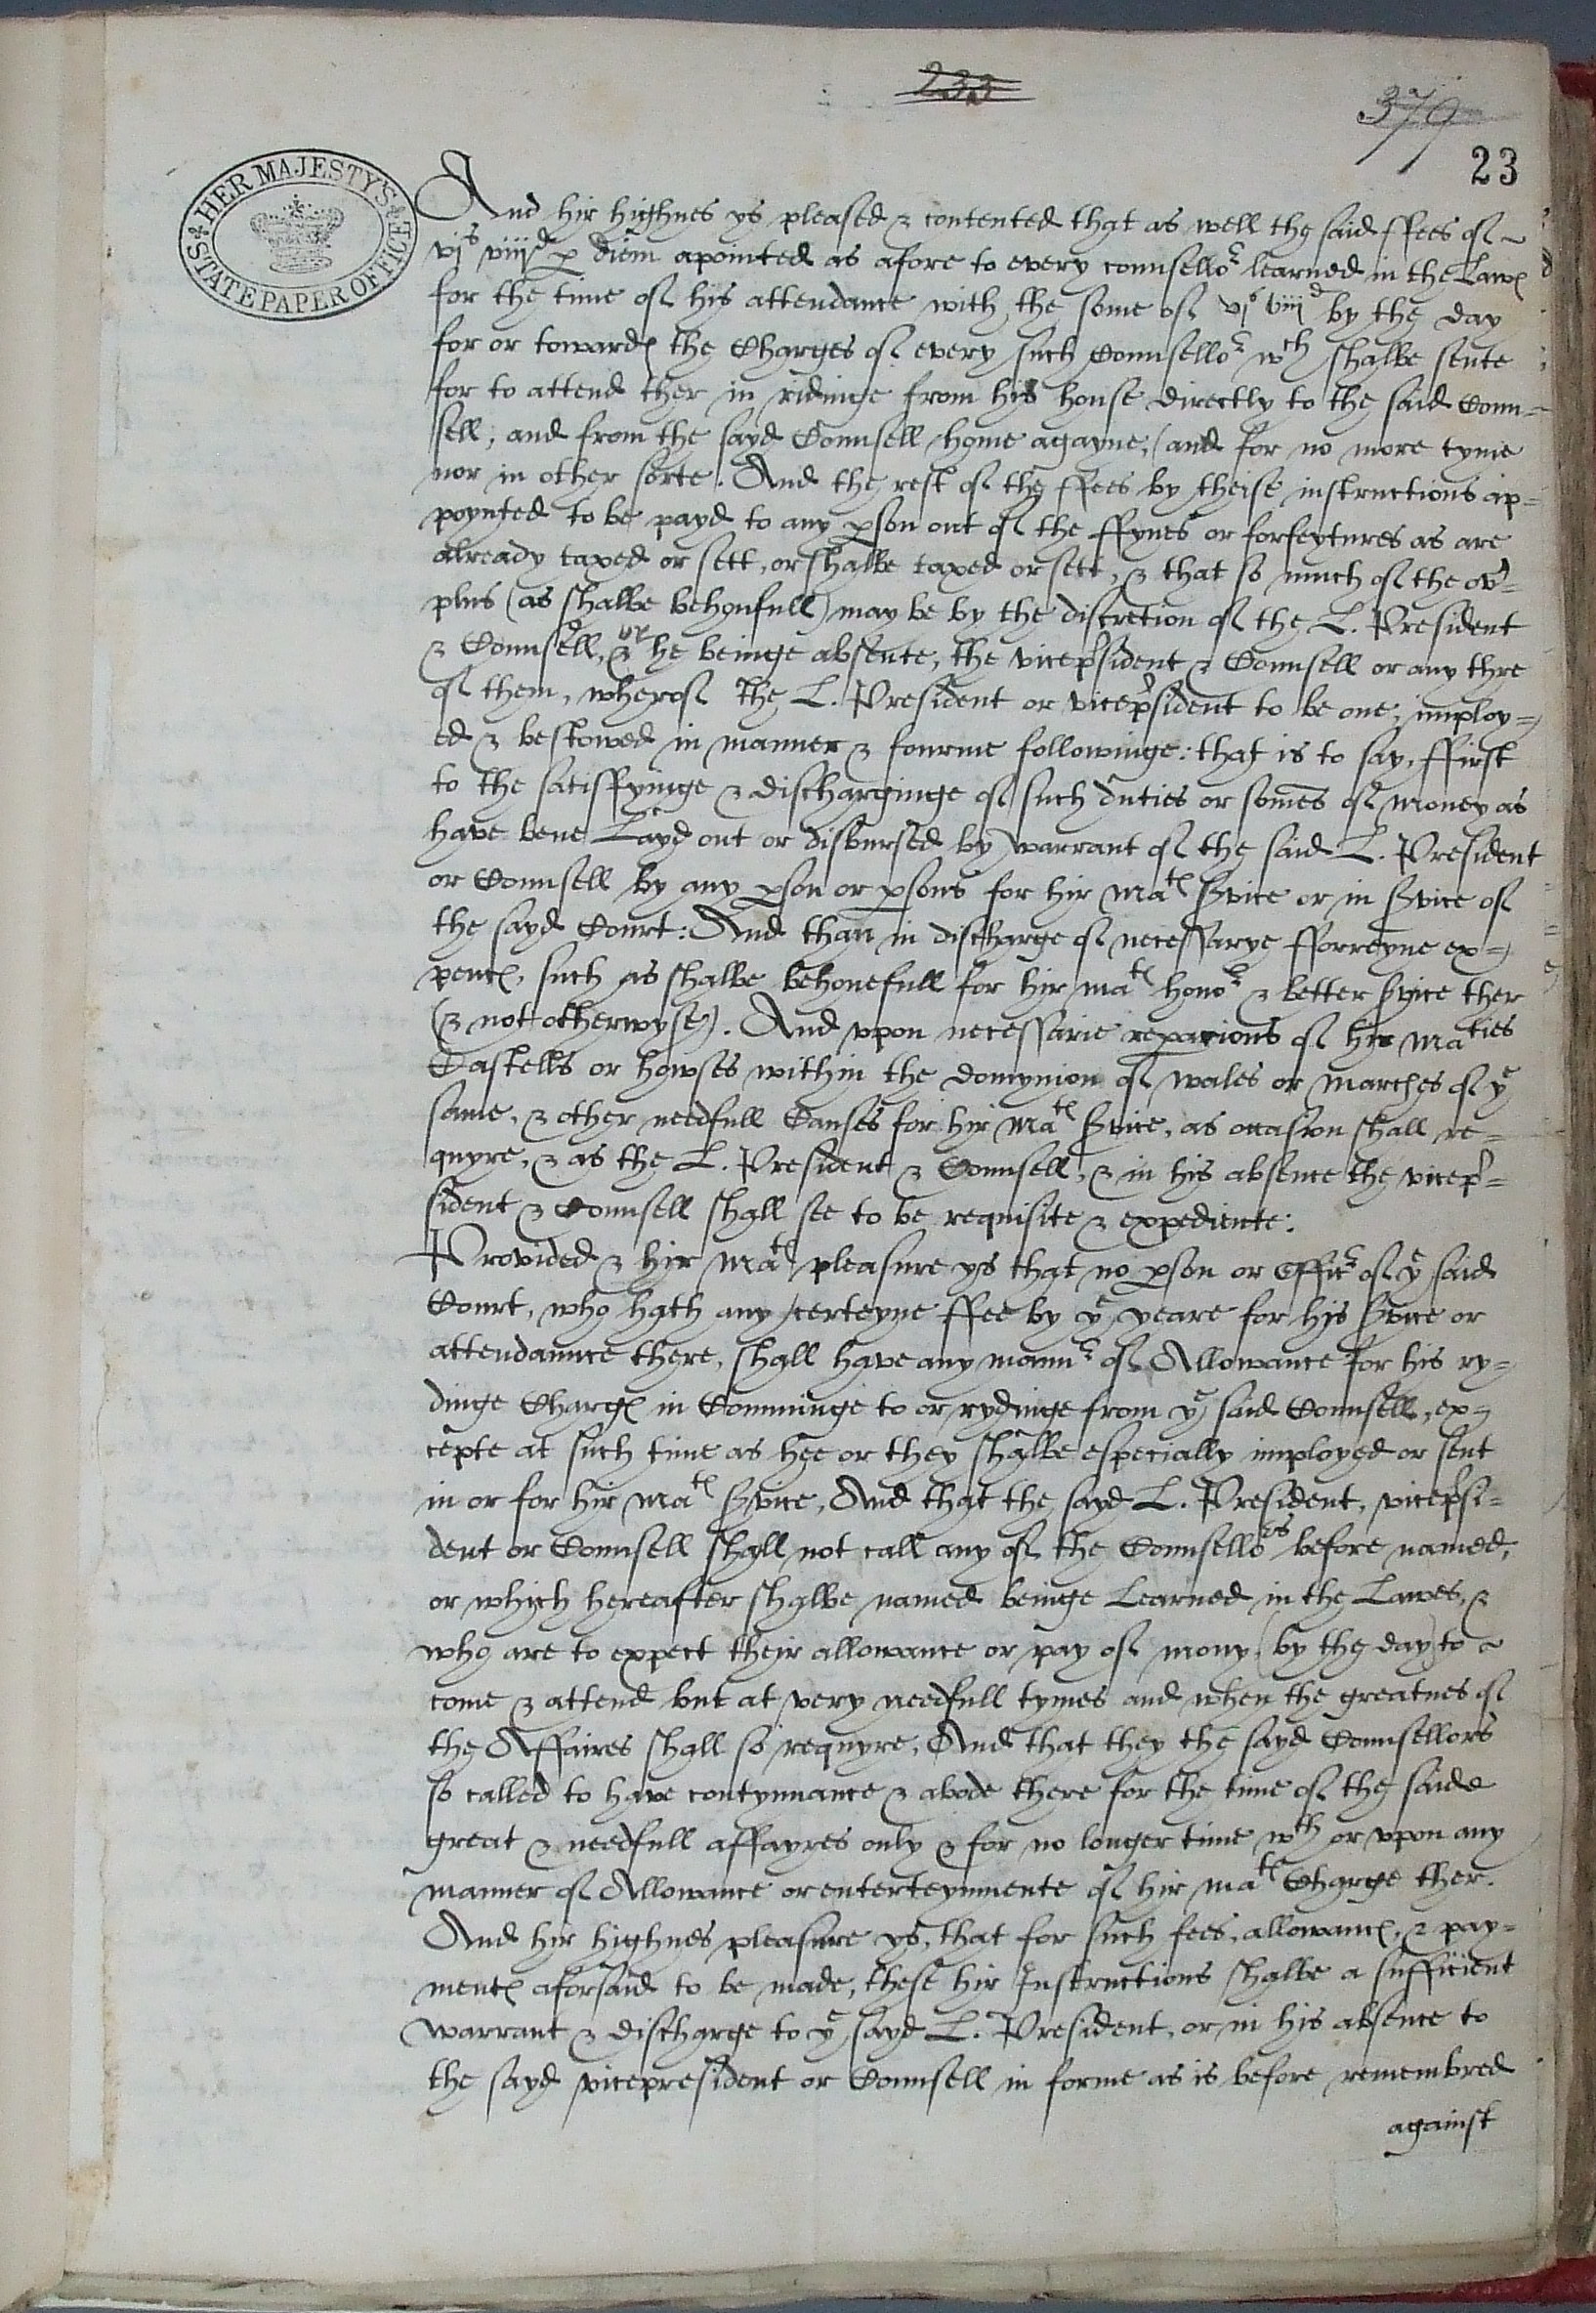 233
379
23
HER MAJESTY'S
STATE PAPER OFFICE
And hir highnes ys pleased & contented that as well the said ffees of
vjs viijd p diem apointed as afore to every counsellor learned in the Lawes
for the time of his attendance with the some of vjs viijd by the day
for or towardes the Charges of every such Counsellor wch shalbe sente
for to attend ther in ridinge from his house directly to the said Coun=
sell, and from the sayd Counsell home agayne, (and for no more tyme
nor in other sorte. And the rest of the ffees by theise instructions ap=
poynted to be payd to any pson out of the ffynes or forfeytures as are
already taxed or sett, or shalbe taxed or sett, & that so much of the ov=
plus (as shalbe behoufull) may be by the discretion of the L. President
& Counsell, & or he beinge absente, the vicepsident & Counsell or any thre
of them, wherof The L. President or vicepsident to be one, imploy=
ed & bestowed in manner & fourme followinge: that is to say, ffirst
to the satisffyinge & discharginge of such duties or somes of money as
have bene Layd out or disbursed by warrant of the said L. President
or Counsell by any pson or psons for hir Mates Svice or in Svice of
the sayd Court: And than in discharge of necessarye fforreyne ex=
pences, such as shalbe behouefull for hir mates honor & better Svice ther
(& not otherwyse). And vpon necessarie reparions of hir Maties
Castells or howses within the domynion of wales or marches of ye
same, & other needfull Causes for hir Mates Svice, as occasion shall re=
quyre, & as the L. President & Counsell, & in his absence the vicep=
sident & Counsell shall see to be requisite & expediente:
Provided & hir Mates pleasure ys that no pson or Officr of ye said
Court, who hath any certeyne ffee by ye yeare for his Svice or
attendaunce there, shall have any mannr of Allowance for his ry=
dinge Charges in Comminge to or rydinge from ye said Counsell, ex=
cepte at such time as hee or they shalbe especially imployed or sent
in or for hir Mates Svice, And that the sayd L. President, vicepsi=
dent or Counsell shall not call any of the Counsellors before named,
or which hereafter shalbe named beinge Learned in the Lawes, &
who are to expect their allowance or pay of mony (by the day) to
come & attend but at very needfull tymes and when the greatnes of
the Affaires shall so requyre, And that they the sayd Counsellors
so called to have contynuance & abode there for the time of the saide
great & needfull affayres only & for no longer time wth or vpon any
manner of Allowance or enterteynmente of hir mates Charge ther.
And hir highnes pleasure ys, that for such fees, allowances, & pay=
mentes aforsaid to be made, these hir Instructions shalbe a sufficient
warrant & discharge to ye sayd L. President, or in his absence to
the sayd vicepresident or Counsell in forme as is before remembred
against